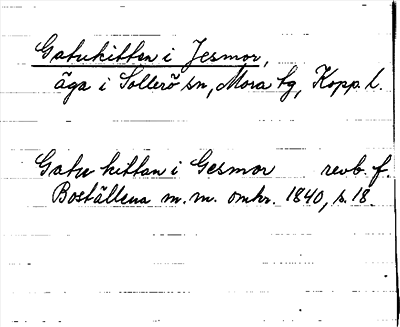 Gatukittan i Jesmor,
äga i Sollerö sn, Mora tg, Kopp. l.
Gatu kittan i Gesmor revb. f.
Boställena m. m. omkr. 1840, s. 18.